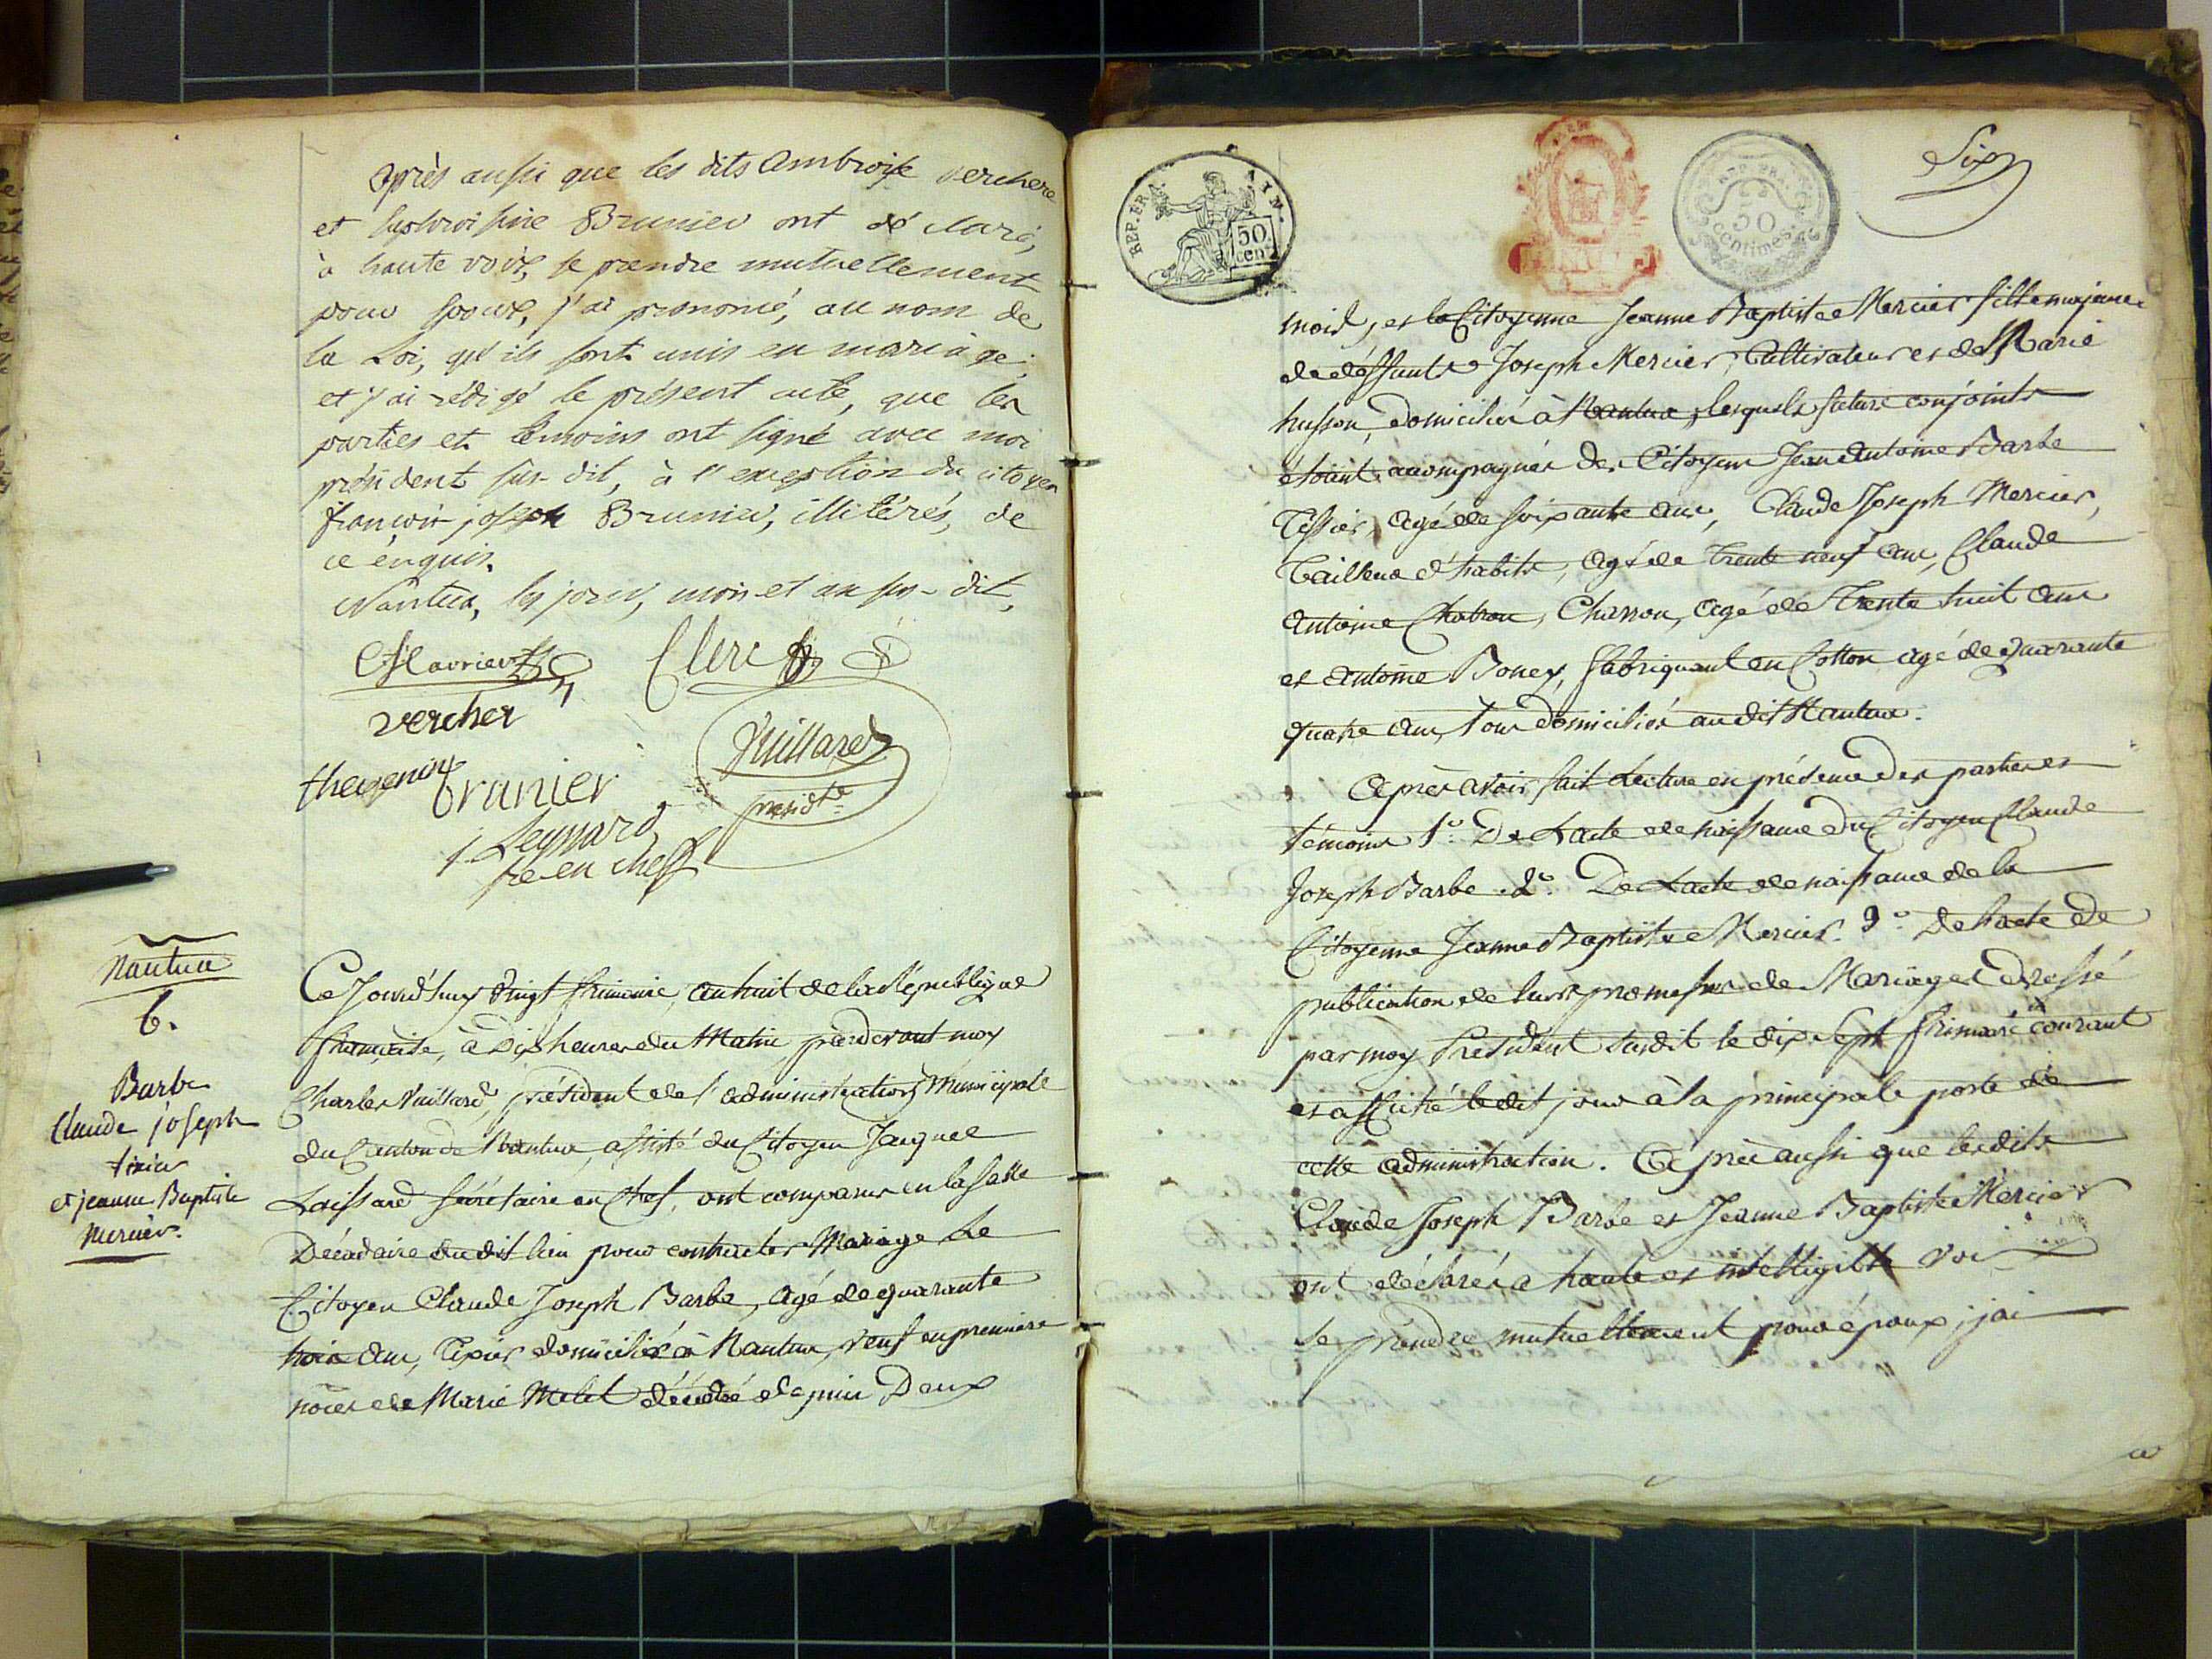 après aussi que les dits Ambroise verchere
et Brunier ont déclaré,
à haute voix, se prendre mutuellement
pour époux, j'ai prononcé, au nom de
la Loi, qu'ils sont unis en mariage;
et j'ai rédigé le présent acte, que les
parties et témoins ont signé avec moi
président sus-dit, à l'exception du citoyen
françois joseph Brunier, illitérés, de
ce enquis.
Nantua, les jour, mois et an sus-dit,
Clerc
vercher
thevenin brunier
Vuillard
présidt
re en chef
Nantua
6.
Barbe
Claude joseph
tixier
et jeanne Baptiste
Mercier.
Ce Jourd'huy Vingt frimaire, an huit de la République
française, à Dix heures du Matin, pardevant moy
Charles Vuillard, président de l'administration Municipale
du Canton de Nantua, assisté du Citoyen Jacques
Laissard Sécrétaire en Chef, ont comparus en la salle
Décadaire dudit lieu pour contracter Mariage, Le
Citoyen Claude Joseph Barbe, agé de quarante
trois ans, Tixier domicilié à Nantua, veuf en premiere
nôces de Marie Melet décédée depuis Deux
REP. FRA. AIN.
50 cent
REP. FRA.
50 centimes
Six
mois, et la Citoyenne Jeanne Baptiste Mercier fille majeure
de deffunt Joseph Mercier, Cultivateur et de Marie
husson, domiciliés à Nantua, lesquels futurs conjoints
étoient accompagnés des Citoyens Jean Antoine Barbe
Tissier, agé de soixante ans, Claude Joseph Mercier,
Tailleur d'habits, agé de trente neuf ans, Claude
Antoine Chatron, Charron, agé de trente huit ans
et Antoine Boney, fabriquant en Cotton agé de quarante
quatre ans, tous domiciliés audit Nantua.
Après avoir fait Lecture en présence des parties et
témoins 1.º De Lacte de naissance du Citoyen Claude
Joseph Barbe. 2.º De Lacte de naissance de la
Citoyenne Jeanne Baptiste Mercier. 3.º De Lacte de
publication de leurs promesses de Mariages dressé
par moy Président susdit le dix sept frimaire courant
et affiché ledit jour à la principale porte de
cette administration. Après aussi que lesdits
Claude Joseph Barbe et Jeanne Baptiste Mercier
ont déclarés a haute et intelligible voix
se prendre mutuellement pour époux, jai